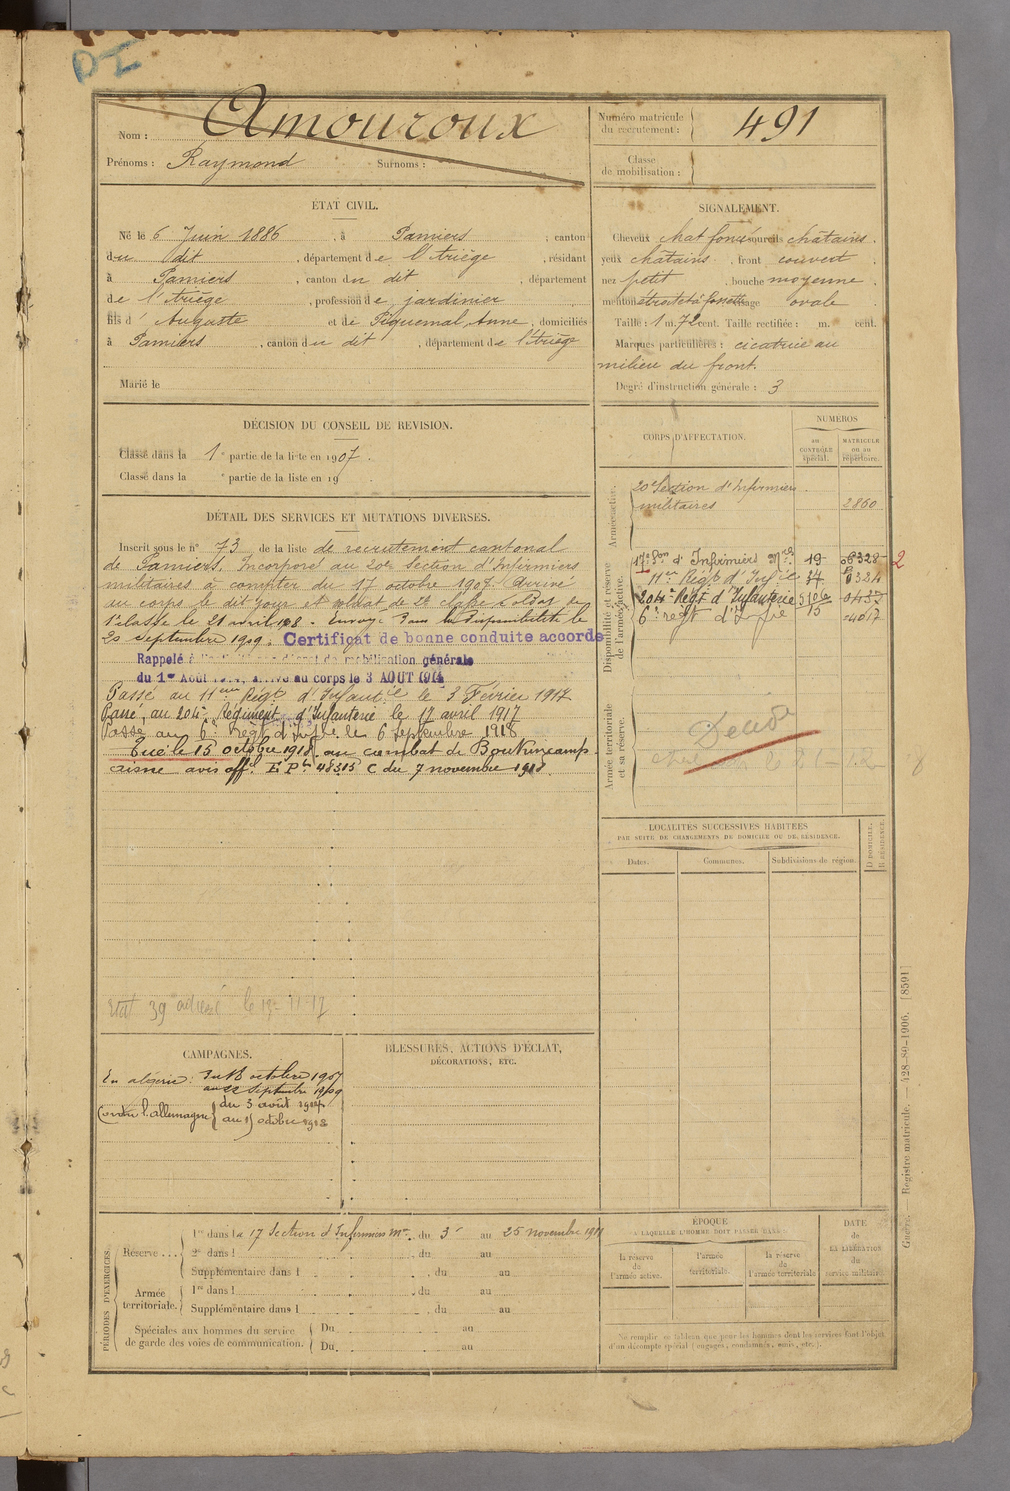 DI
Nom : Amouroux
Prénoms : Raymond Surnoms :
Numéro matricule
du recrutement : 491
Classe
de mobilisation :
ÉTAT CIVIL.
Né le 6 Juin 1886, à Pamiers, canton
du dit, département de l'Ariège, résidant
à Pamiers, canton du dit, département
de l'Ariège, profession de jardinier
fils d' Auguste et de Piquemal Anne, domiciliés
à Pamiers, canton du dit, département de l'Ariège
Marié le
SIGNALEMENT.
Cheveux chat foncé sourcils châtains.
yeux châtains, front couvert,
nez petit, bouche moyenne,
menton étroit à fossette visage ovale
Taille : 1 m. 72 cent. Taille rectifiée : m. cent.
Marques particulières : cicatrice au
milieu du front.
Degré d'instruction générale : 3
DÉCISION DU CONSEIL DE REVISION.
Classé dans la 1e partie de la liste en 1907.
Classé dans la e partie de la liste en 19
DÉTAIL DES SERVICES ET MUTATIONS DIVERSES.
Inscrit sous le n° 73 de la liste de recrutement cantonal
de Pamiers. Incorporé au 20e Section d'Infirmiers
militaires à compter du 17 octobre 1907. Arrivé
au corps le dit jour et soldat de 2e classe. Soldat de
1e classe le 21 avril 1908. Envoyé dans la disponibilité le
20 septembre 1909. Certificat de bonne conduite accordé
Rappelé à l'activité mobilisation générale
du 1er Août 1914, arrivé au corps le 3 AOUT 1914
Passé au 11eme Régt d'Infantie le 3 Février 1917
Passé, au 204e Régiment d'Infanterie le 17 avril 1917
Passé au 6e Regt d'Infie le 6 septembre 1918
Tué le 15 octobre 1918 au combat de
aisne avis offel E. P. 48313 C du 7 novembre 1918.
Etat 39 adressé le 11-17
CORPS D'AFFECTATION.
NUMÉROS
AU
CONTRÔLE
spécial.
MATRICULE
OU AU
répertoire.
Armée active.
20e Section d'Infirmiers
militaires 2860
Disponibilité et réserve
de l'armée active.
17e Son d'Infirmiers Mres 19 6328 2
11eme Régt d'Infie 34
204e Régt d'Infanterie
6e regt d'Infie 15
Armée territoriale
et sa réserve.
LOCALITÉS SUCCESSIVES HABITÉES
PAR SUITE DE CHANGEMENTS DE DOMICILE OU DE RÉSIDENCE.
Dates. Communes. Subdivisions de région.
D DOMICILE.
R RÉSIDENCE.
CAMPAGNES.
En algérie : du 18 octobre 1907
au 22 septembre 1909
Contre l'allemagne du 3 août 1914
au 15 octobre 1918
BLESSURES, ACTIONS D'ÉCLAT,
DÉCORATIONS, ETC.
PÉRIODES D'EXERCICES.
Réserve...
1re dans la 17 Section d'Infirmiers Mres du 3 au 25 novembre 1911
2e dans l du au
Supplémentaire dans l du au
Armée
territoriale.
1re dans l du au
Supplémentaire dans l du au
Spéciales aux hommes du service
de garde des voies de communication.
Du au
Du au
ÉPOQUE
À LAQUELLE L'HOMME DOIT PASSER DANS
la réserve
de
l'armée active.
l'armée
territoriale.
la réserve
de
l'armée territoriale
DATE
de
LA LIBÉRATION
du
service militaire.
Ne remplir ce tableau que pour les hommes dont les services font l'objet
d'un décompte spécial (engagés, condamnés, omis, etc.).
Guerre. — Registre matricule. — 428-89-1906. [8591]